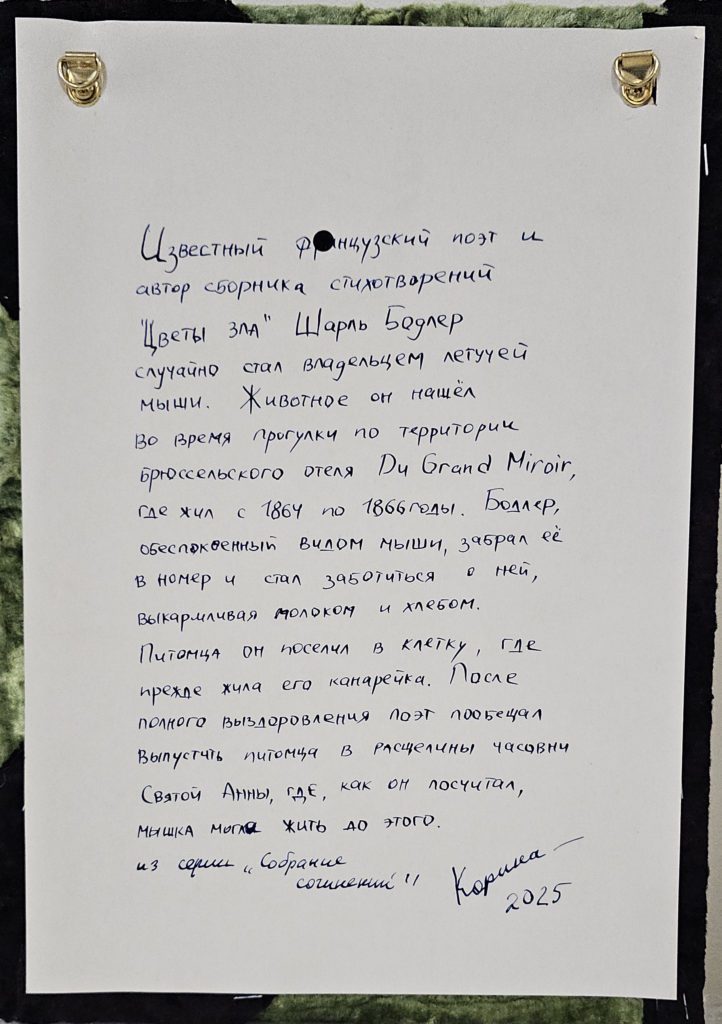 Известный французский поэт и
автор сборника стихотворений
"Цветы зла" Шарль Бодлер
случайно стал владельцем летучей
мыши. Животное он нашёл
во время прогулки по территории
брюссельского отеля Du Grand Miroir,
где жил с 1864 по 1866 годы. Бодлер,
обеспокоенный видом мыши, забрал её
в номер и стал заботиться о ней,
выкармливая молоком и хлебом.
Питомца он поселил в клетку, где
прежде жила его канарейка. После
полного выздоровления поэт пообещал
выпустить питомца в расщелины часовни
Святой Анны, где, как он посчитал,
мышка могла жить до этого.
из серии "Собрание
сочинений"
Корина
2025